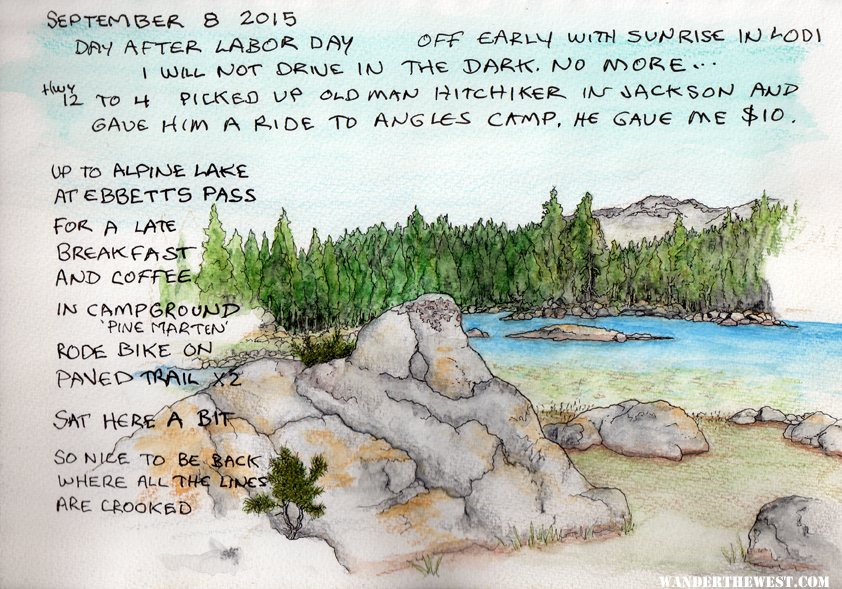 SEPTEMBER 8 2015
DAY AFTER LABOR DAY OFF EARLY WITH SUNRISE IN LODI
I WILL NOT DRIVE IN THE DARK. NO MORE...
HWY 12 TO 4 PICKED UP OLD MAN HITCHIKER IN JACKSON AND
GAVE HIM A RIDE TO ANGLES CAMP. HE GAVE ME $10.
UP TO ALPINE LAKE
AT EBBETTS PASS
FOR A LATE
BREAKFAST
AND COFFEE
IN CAMPGROUND
'PINE MARTEN'
RODE BIKE ON
PAVED TRAIL X2
SAT HERE A BIT
SO NICE TO BE BACK
WHERE ALL THE LINES
ARE CROOKED
WANDERTHEWEST.COM